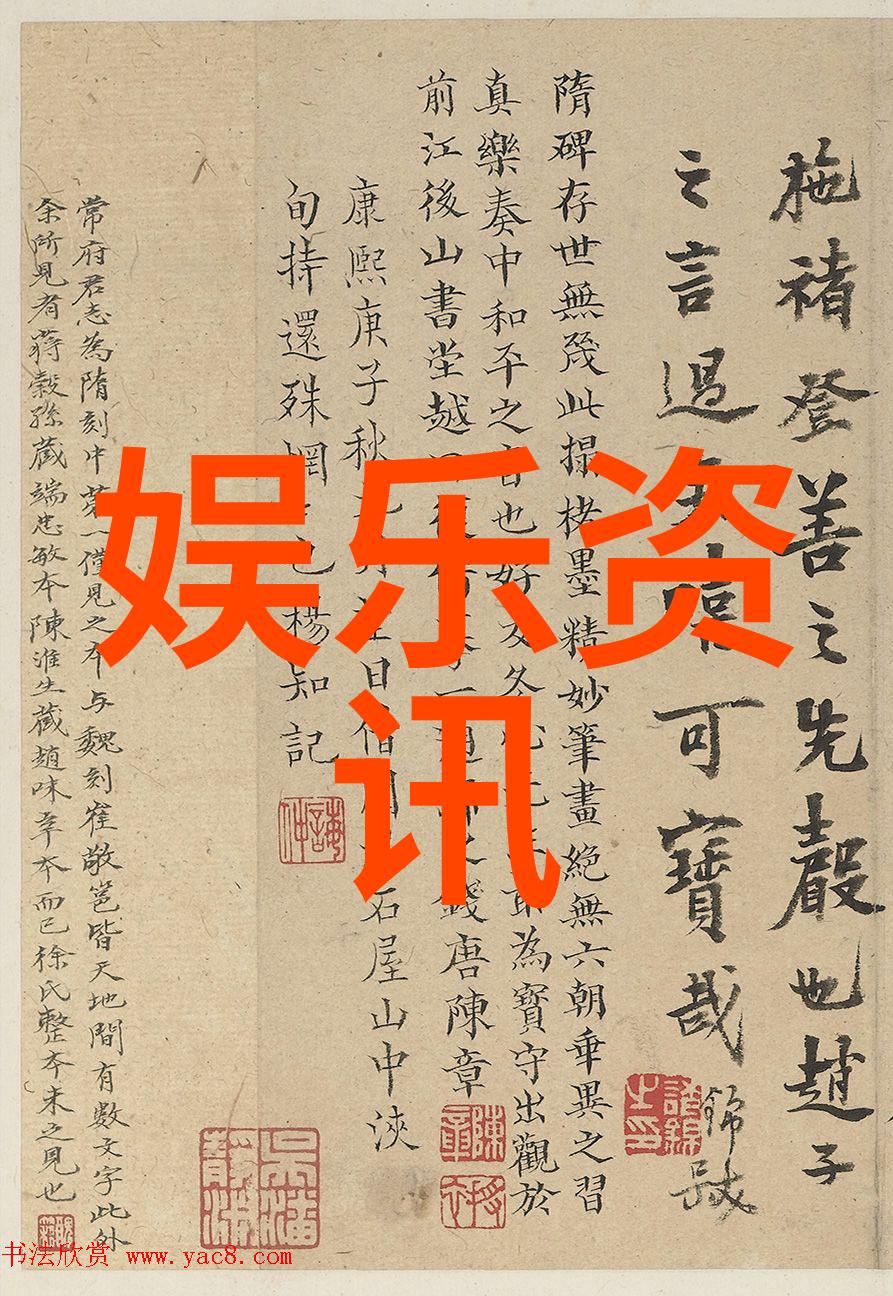 褚登善之先聲也趙子
之言過可寶哉
隋碑存世無幾此搨楮墨精妙筆畫絕無六朝乖異之習
真樂奏中和平之音也好友為寶守出觀於
前江後山書堂越錢唐陳章
康熙庚子秋石屋山中浹
旬持還殊惘也楊知記
常府君志為隋刻中第一僅見之本与魏刻崔敬邕皆天地間有數文字此外
余所見有蔣穀孫藏端忠敏本陳淮生藏趙味辛本而已徐氏整本未之見也
娱乐资
讯
书法欣赏 www.yac8.com